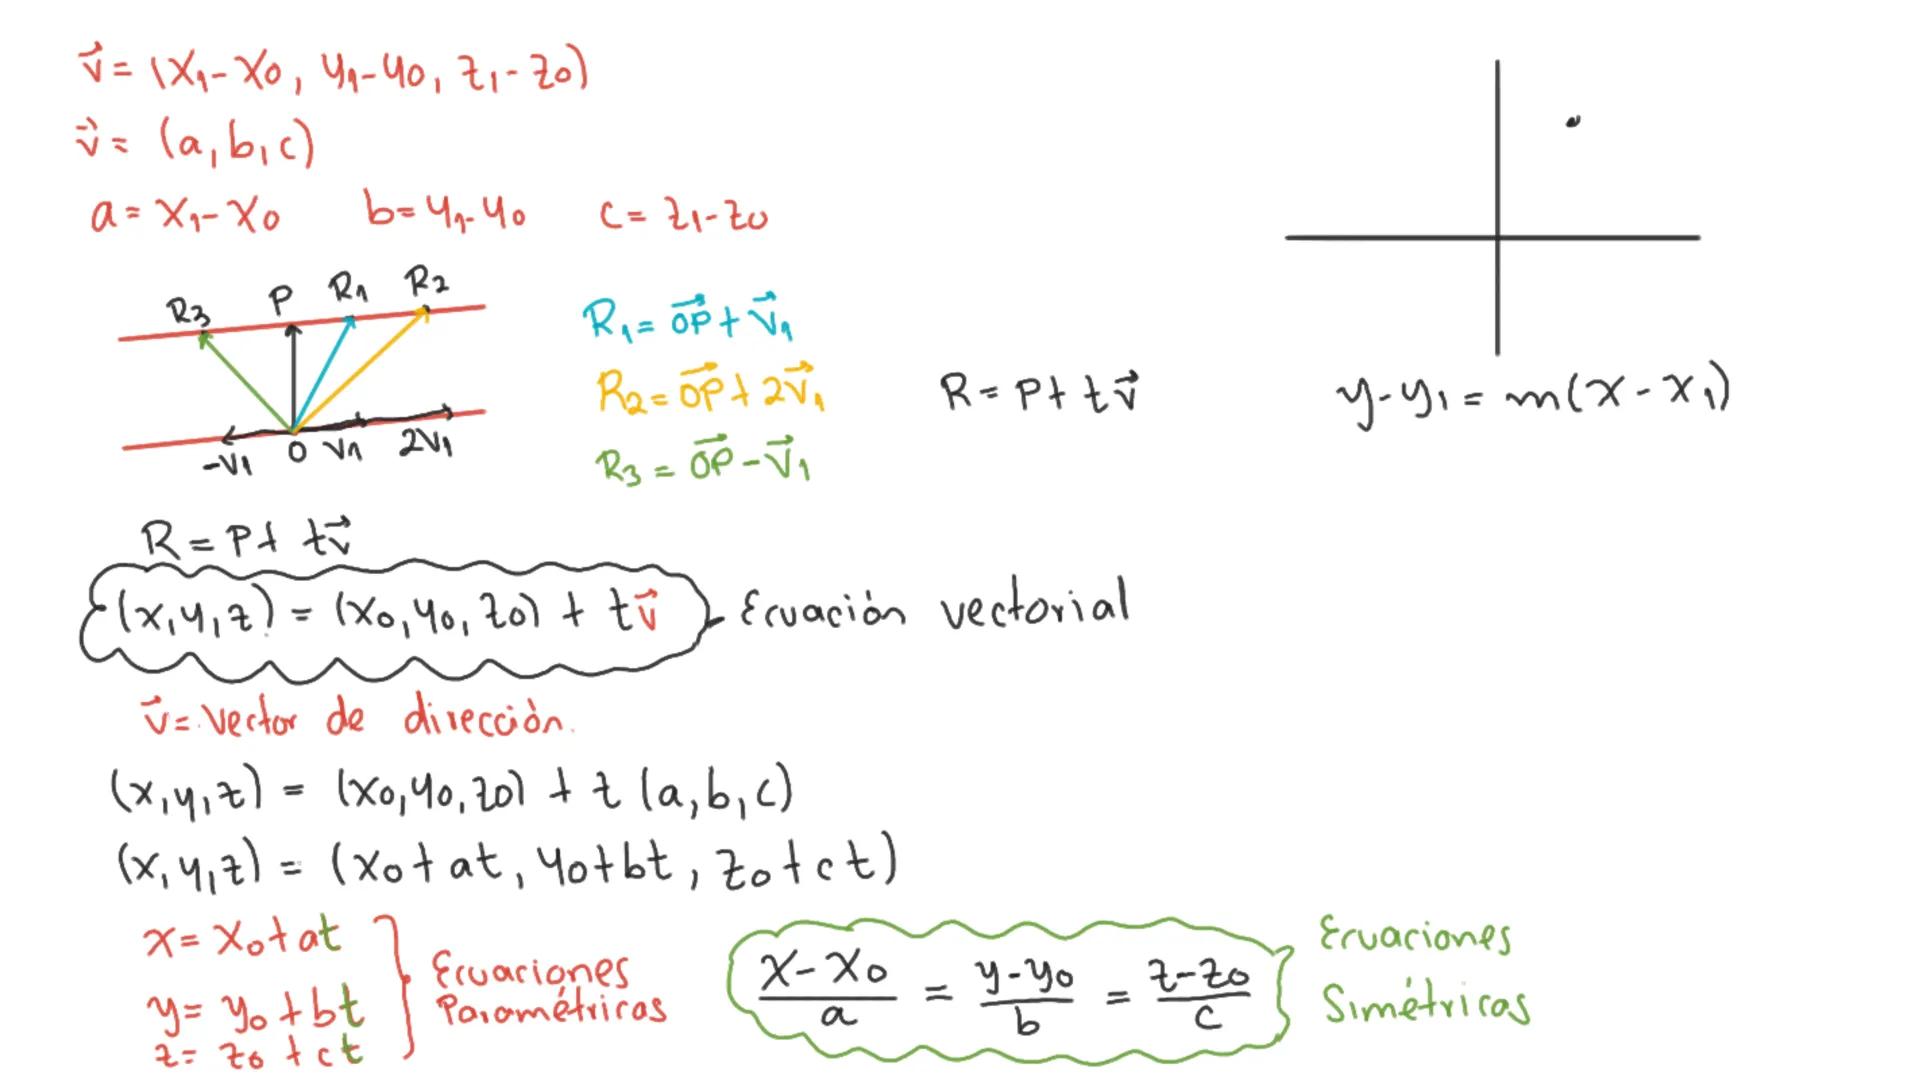 v⃗ = (x₁-x₀, y₁-y₀, z₁-z₀)
v⃗ = (a,b,c)
a = x₁-x₀ b = y₁-y₀ c = z₁-z₀
R₃ P R₁ R₂
-V₁ 0 V₁ 2V₁
R₁ = 0P⃗ + V⃗₁
R₂ = 0P⃗ + 2V⃗₁
R₃ = 0P⃗ - V⃗₁
R = P + t v⃗
y-y₁ = m(x-x₁)
R = P + t v⃗
(x,y,z) = (x₀,y₀,z₀) + t v⃗ Ecuación vectorial
v⃗ = Vector de dirección.
(x,y,z) = (x₀,y₀,z₀) + t (a,b,c)
(x,y,z) = (x₀+at, y₀+bt, z₀+ct)
x = x₀+at
y = y₀+bt
z = z₀+ct
Ecuaciones
Paramétricas
(x-x₀)/a = (y-y₀)/b = (z-z₀)/c
Ecuaciones
Simétricas